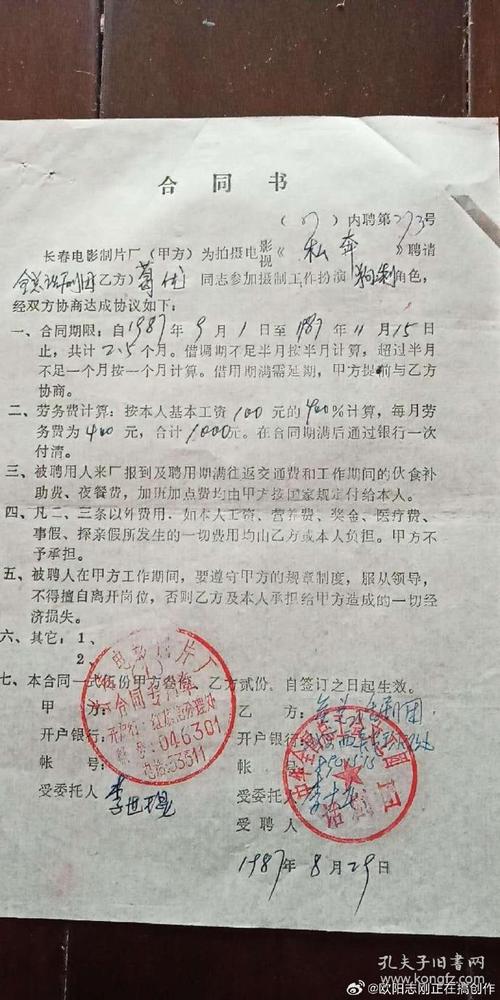 合同书
(87)内聘第273号
长春电影制片厂(甲方)为拍摄电影视《私奔》聘请
全总话剧团乙方)葛优同志参加摄制工作扮演 角色,
经双方协商达成协议如下:
一、合同期限:自1987年9月1日至1987年11月15日
止,共计2.5个月。借调期不足半月按半月计算,超过半月
不足一个月按一个月计算。借用期满需延期,甲方提前与乙方
协商。
二、劳务费计算:按本人基本工资100元的400%计算,每月劳
务费为400元,合计1000元。在合同期满后通过银行一次
付清。
三、被聘用人来厂报到及聘用期满往返交通费和工作期间的伙食补
助费、夜餐费,加班加点费均由甲方按国家规定付给本人。
四、凡二、三条以外费用.如本人工资、营养费、奖金、医疗费、
事假、探亲假所发生的一切费用均由乙方或本人负担。甲方不
予承担。
五、被聘人在甲方工作期间,要遵守甲方的规章制度,服从领导,
不得擅自离开岗位,否则乙方及本人承担给甲方造成的一切经
济损失。
六、其它:1、
2、
七、本合同一式 份甲方 份,乙方贰份。自签订之日起生效。
甲方:
乙方:全总话剧团
开户银行:
开户银行:
帐号:
帐号:
受委托人
受委托人
受聘人
1987年8月29日
电影制片厂
合同专用章
开户行:红旗街分理处
帐号:046301
电话:53311
话剧团
孔夫子旧书网
kongfz.com
@欧阳志刚正在搞创作